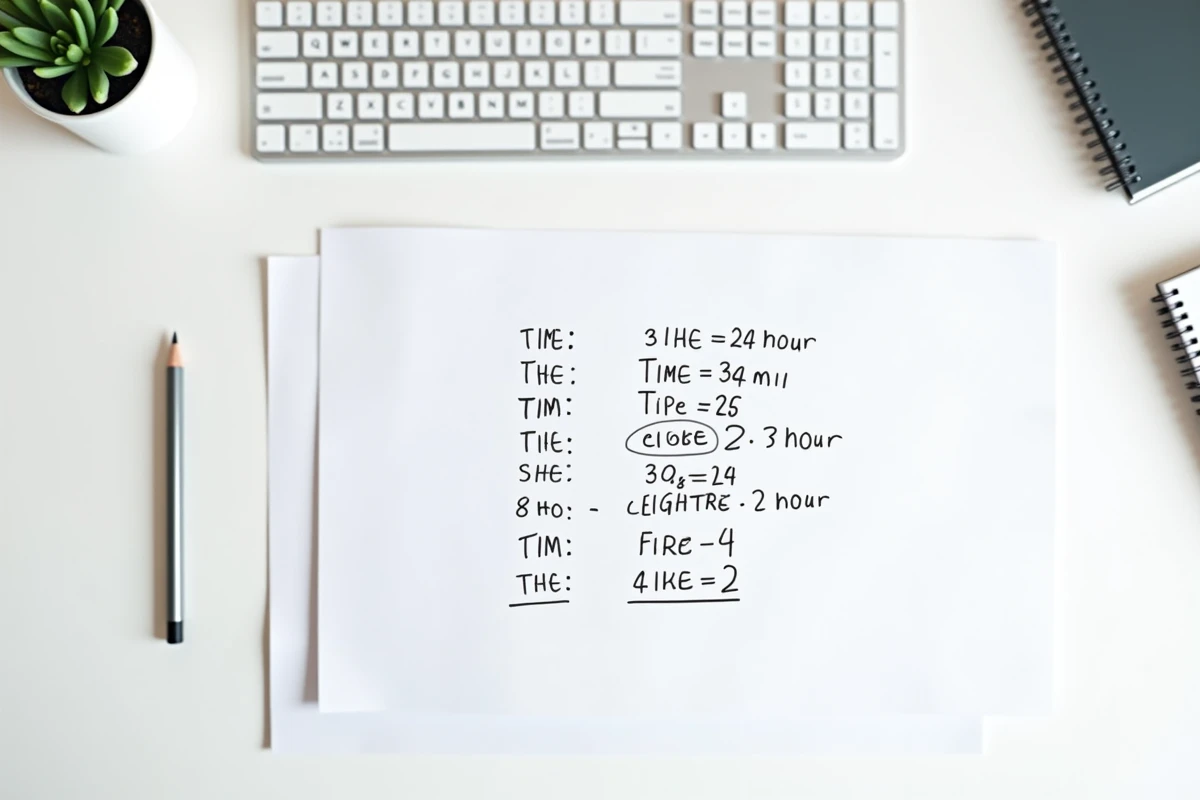 TIME: 31HE = 24 hour
THE: TIME = 34 mil
TIM: TIPe = 25
TIIE: 2. 3 hour
SHE: 30₈ = 24
8 HO: - LEIGHTRE. 2 hour
TIM: FIRE - 4
THE: 4IKE = 2